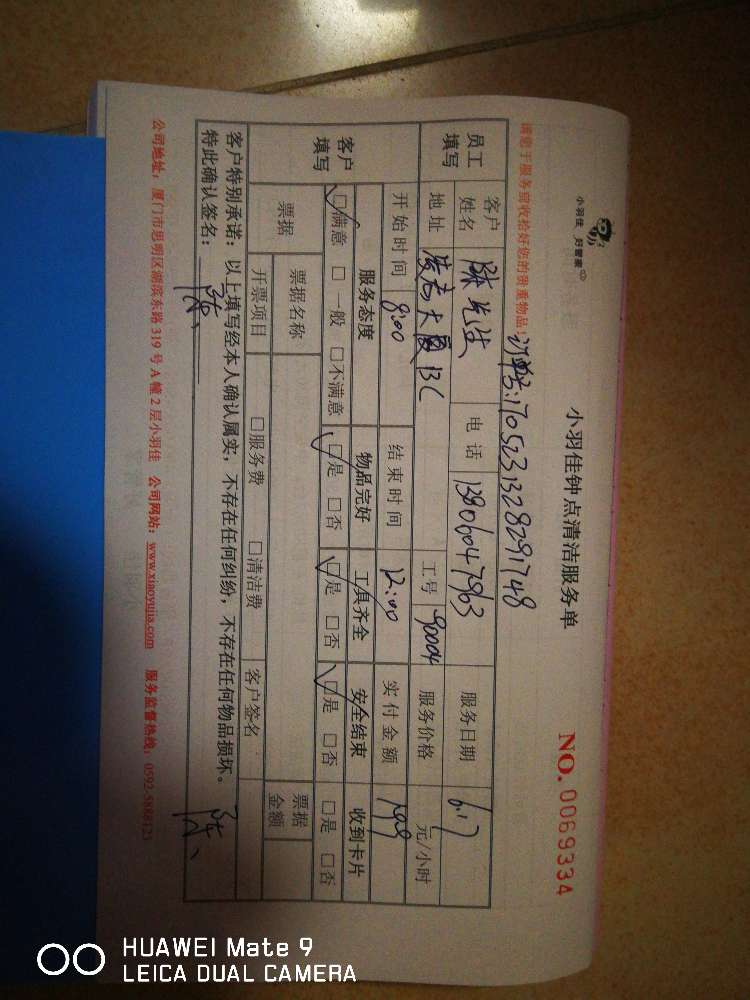 小羽佳 好管家
小羽佳钟点清洁服务单
NO. 0069334
请您于服务前收拾好您的贵重物品!
订单号:1705231328291748
员工填写
客户姓名 陈先生 电话 13806047963 服务日期 6.17
地址 凌志大厦13C 工号 90004 服务价格 元/小时
客户填写
开始时间 8:00 结束时间 12:00 实付金额 198
服务态度 物品完好 工具齐全 安全结束 收到卡片
☑满意 □一般 □不满意 ☑是 □否 ☑是 □否 ☑是 □否 □是 □否
票据 票据名称 票据金额
开票项目 □服务费 □清洁费 客户签名
客户特别承诺:以上填写经本人确认属实,不存在任何纠纷,不存在任何物品损坏。
特此确认签名: 陈 陈
公司地址:厦门市思明区湖滨东路 319 号 A 幢 2 层小羽佳 公司网站:www.xiaoyujia.com 服务监督热线:0592-5888123
HUAWEI Mate 9
LEICA DUAL CAMERA